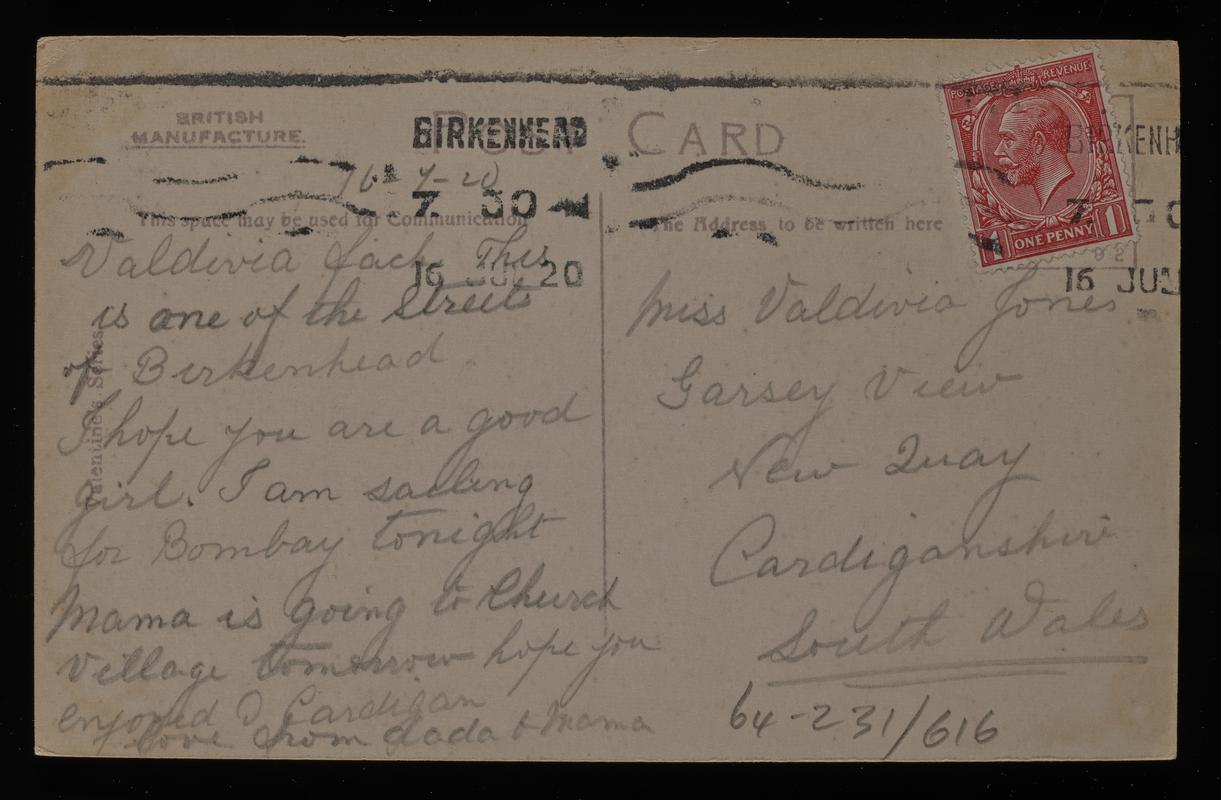 BRITISH
MANUFACTURE.
POST CARD
BIRKENHEAD
7 30
16 JU 20
16-7-20
This space may be used for Communication
The Address to be written here
Valentine's Series
Valdivia fach. This
is one of the streets
of Birkenhead
I hope you are a good
girl. I am sailing
for Bombay tonight
Mama is going to Church
Village tomorrow hope you
enjoyed Cardigan
love from dada & Mama
POSTAGE REVENUE
1 ONE PENNY 1
BIRKENH
7
16 JU
Miss Valdivia Jones
Garsey View
New Quay
Cardiganshire
South Wales
64-231/616